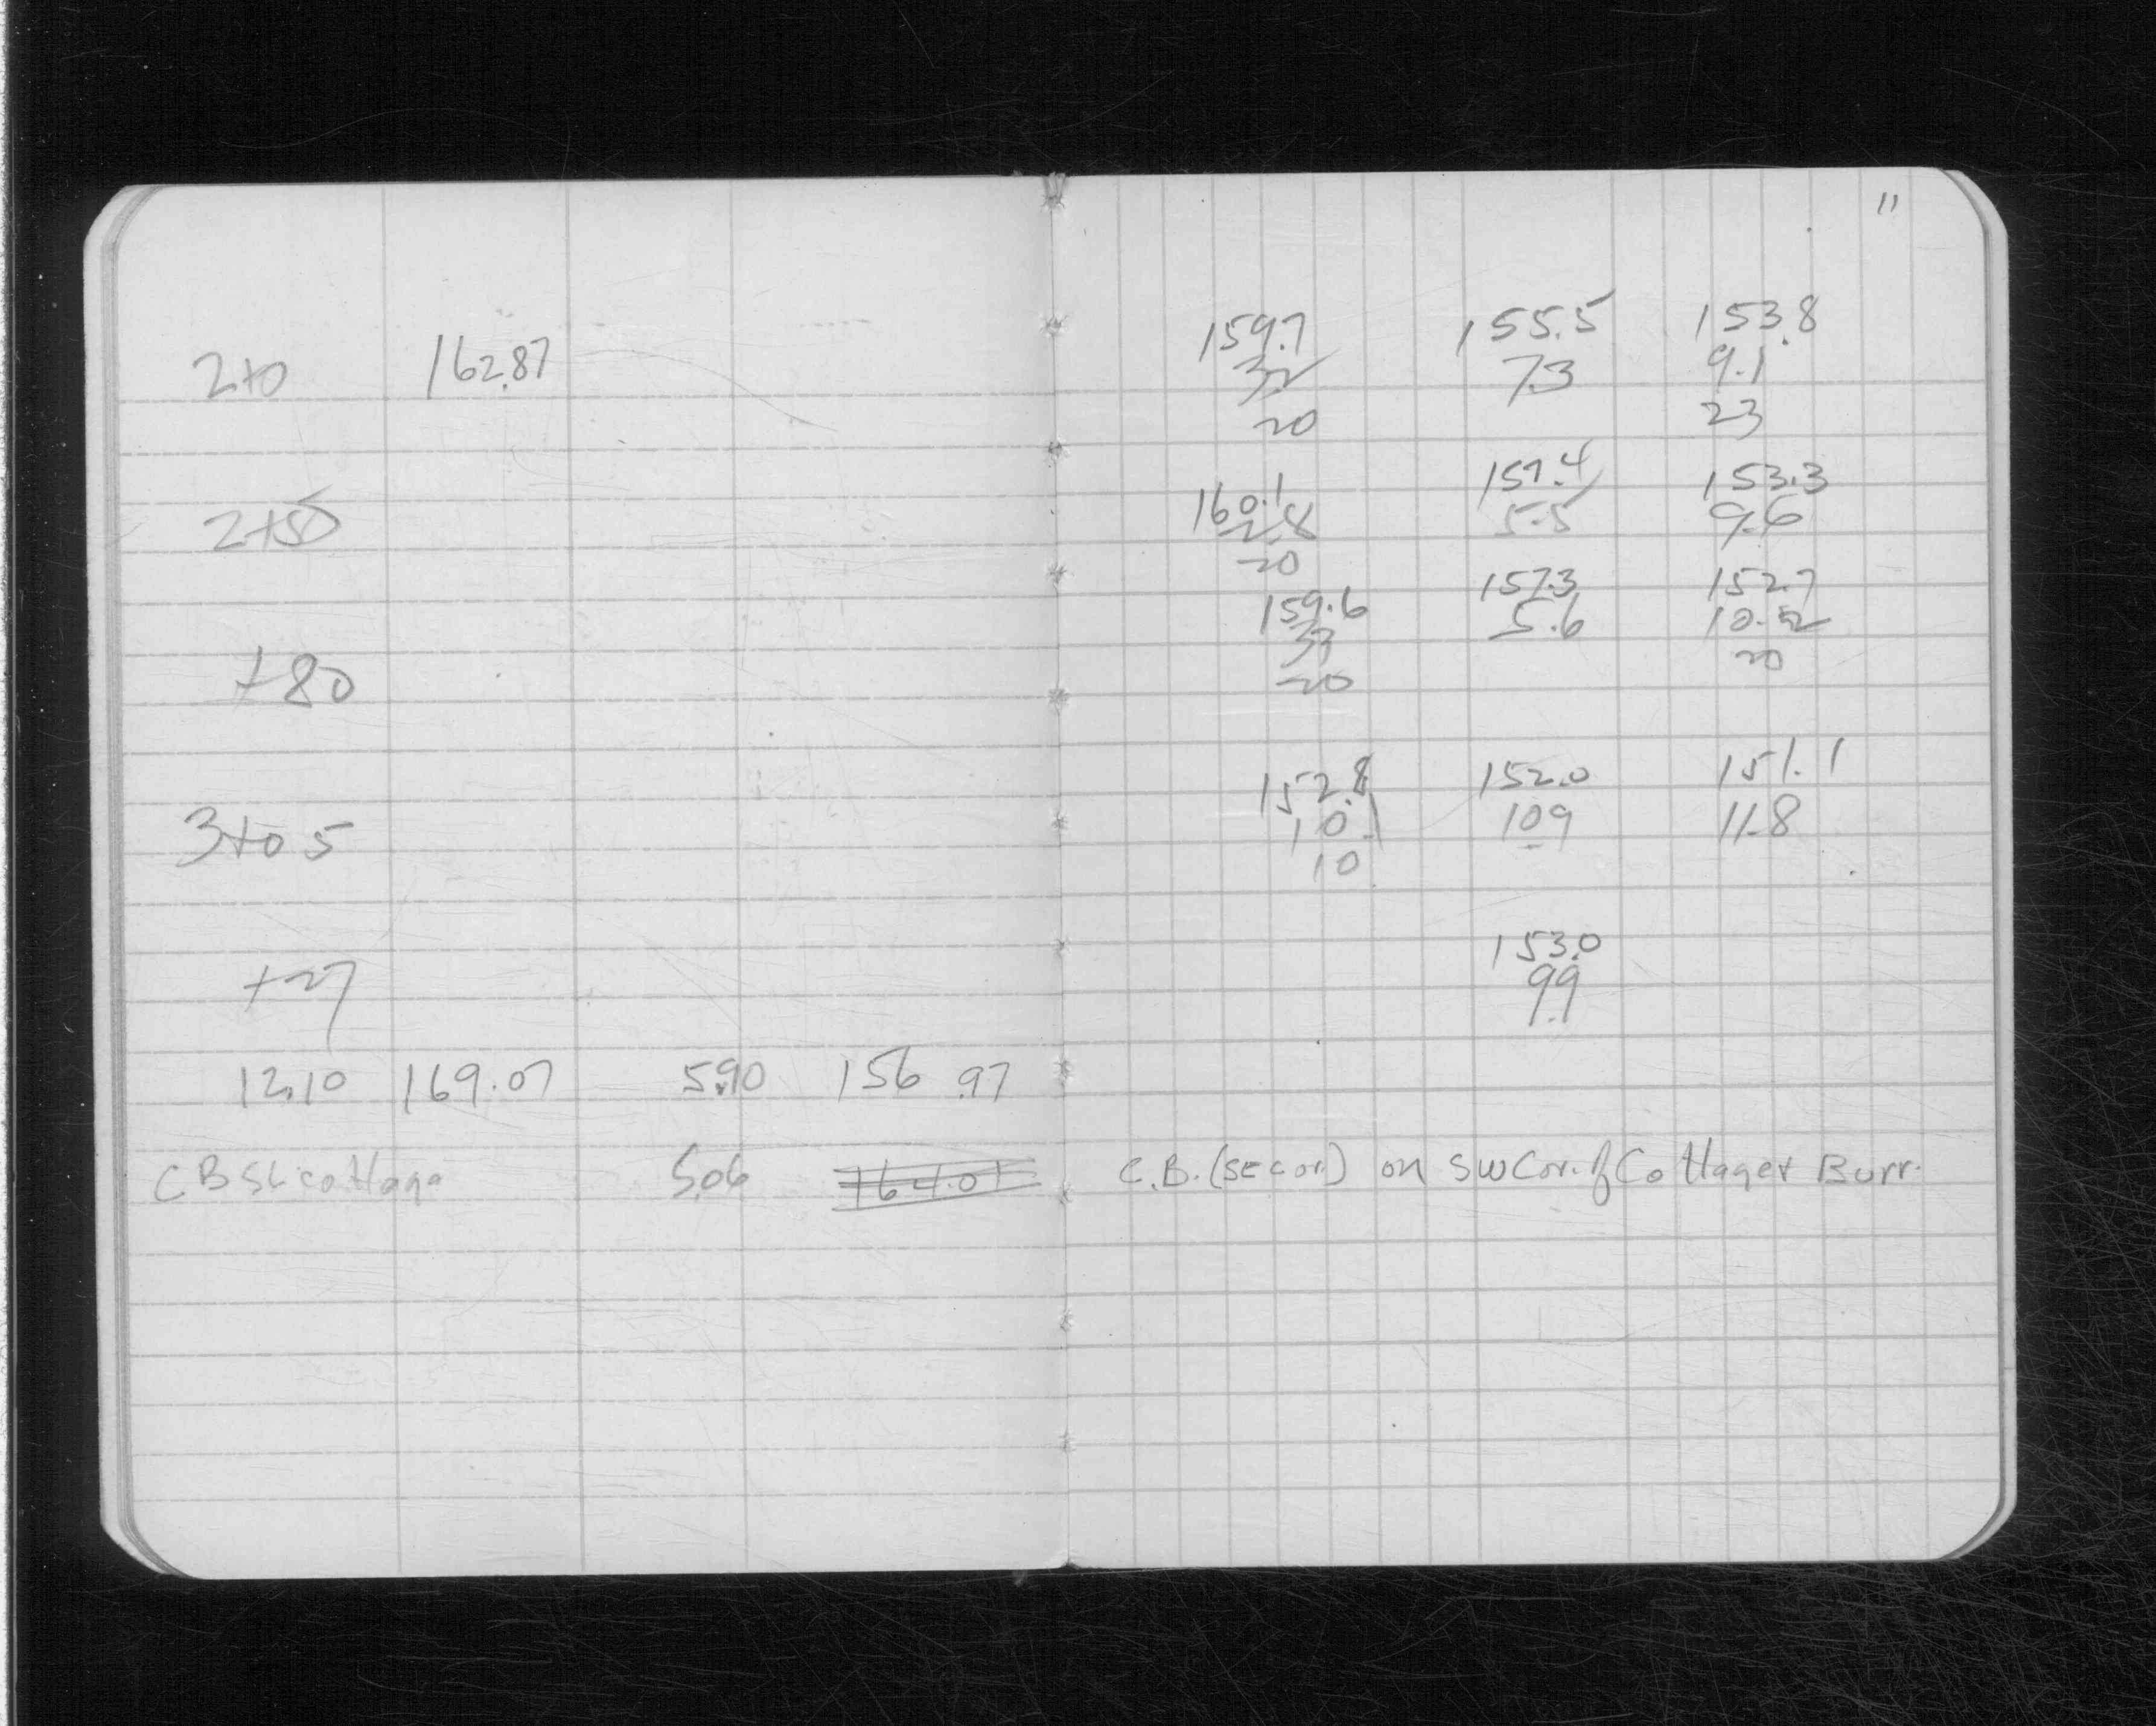 11
2+0 162.87 159.7 155.5 153.8
3.2 7.3 9.1
20 23
2+50 160.1 157.4 153.3
2.8 5.5 9.6
20
159.6 157.3 152.7
+80 33 5.6 10.2
20 20
152.8 152.0 151.1
3+05 10.1 109 11.8
10
153.0
+27 9.9
12.10 169.07 5.90 156.97
CB SE cottage 5.06 164.01 C.B. (SE cor.) on SW Cor. of Cottager Burr.